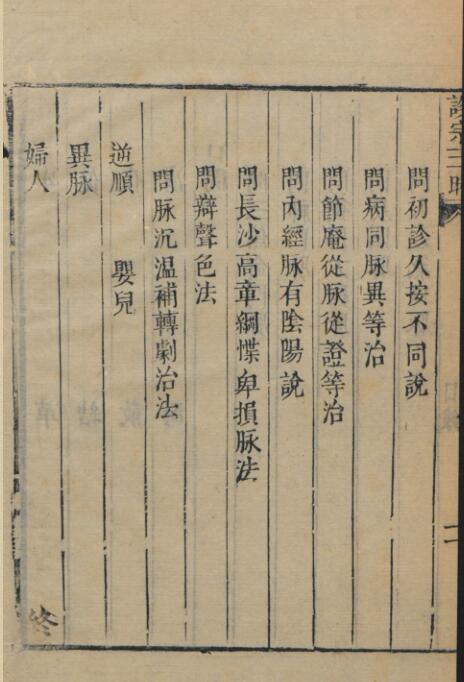 診宗三昧
問初診久按不同說
問病同脉異等治
問節庵從脉從證等治
問內經脉有陰陽說
問長沙高章綱惵卑損脉法
問辯聲色法
問脉沉温補轉劇治法
逆順
嬰兒
異脉
婦人
終